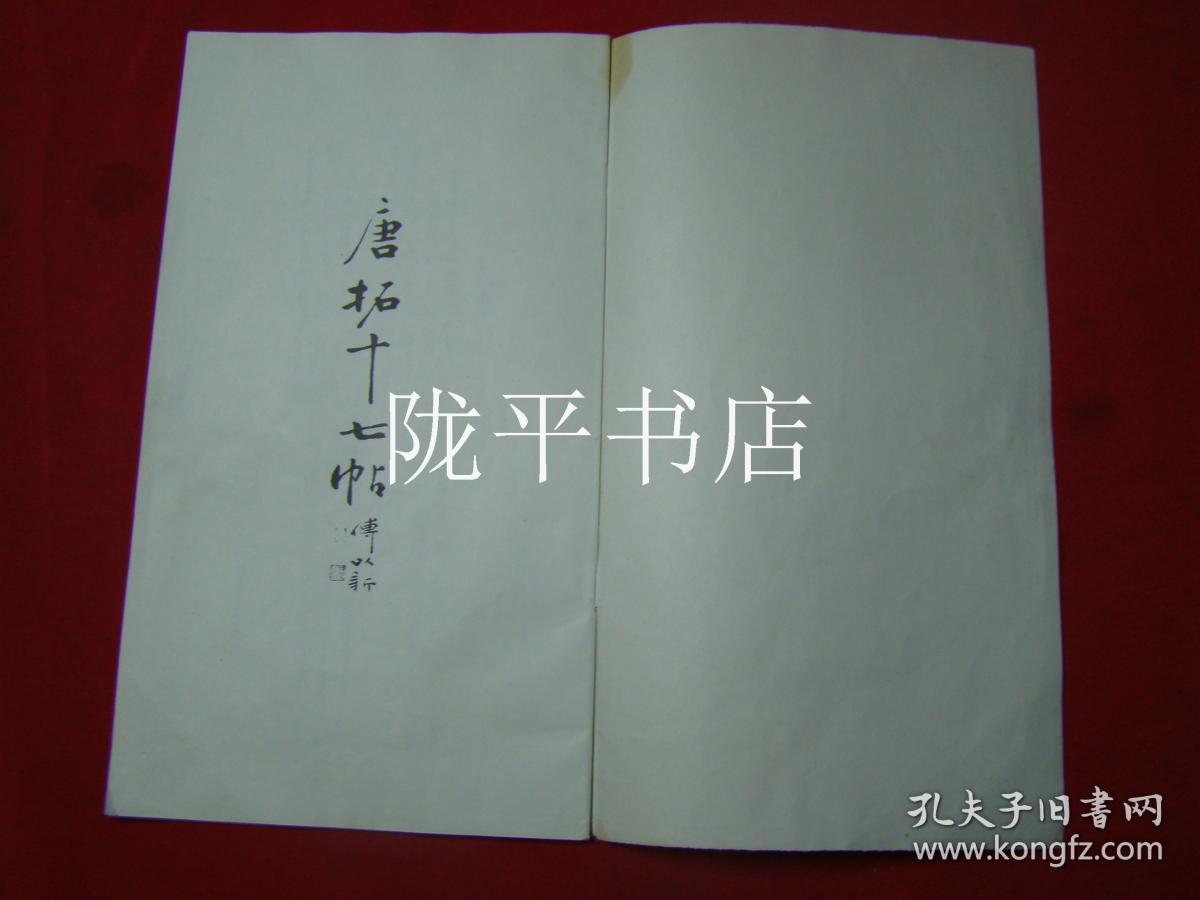 唐拓十七帖
傅以新
陇平书店
孔夫子旧書网
www.kongfz.com